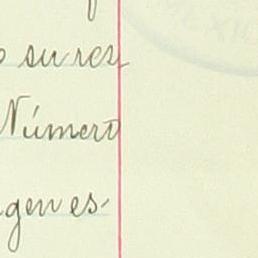 o su res-
Número
gen es-